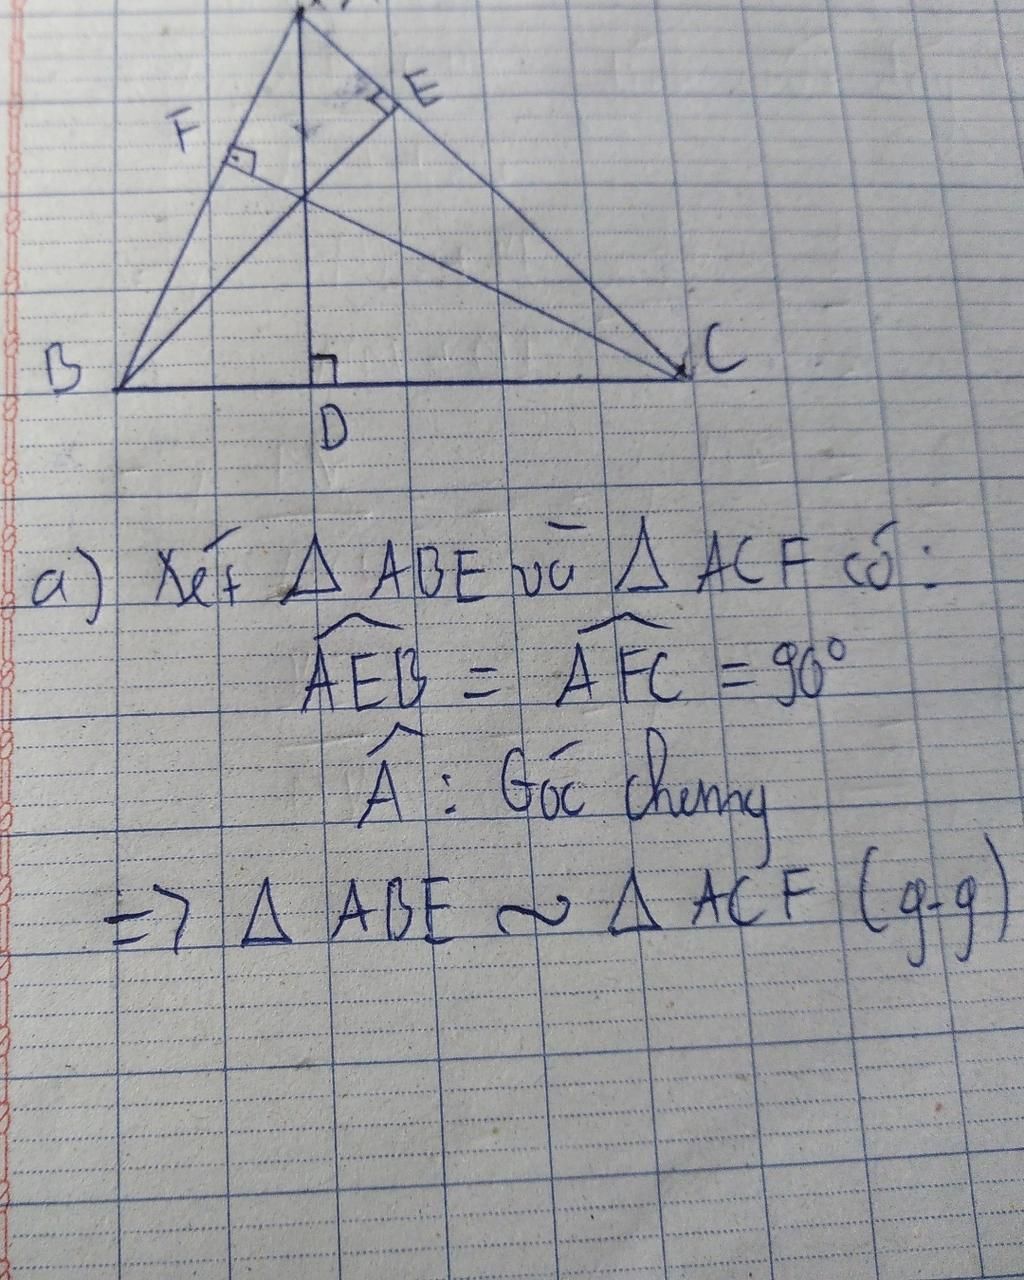 E
F
B
C
D
a) Xét Δ ABE và Δ ACF có:
\widehat{AEB} = \widehat{AFC} = 90°
\widehat{A} : Góc chung
=> Δ ABE ~ Δ ACF (g-g)